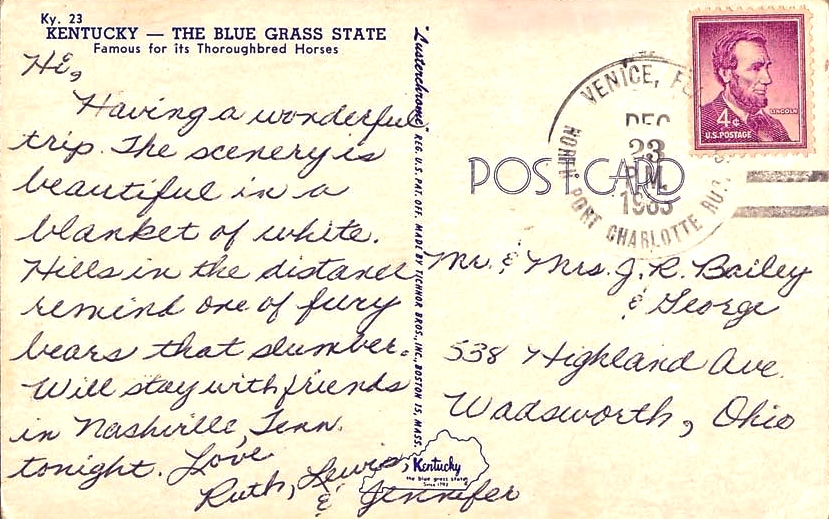 Ky. 23
KENTUCKY — THE BLUE GRASS STATE
Famous for its Thoroughbred Horses
Hi,
Having a wonderful
trip. The scenery is
beautiful in a
blanket of white.
Hills in the distance
remind one of fury
bears that slumber.
Will stay with friends
in Nashville, Tenn.
tonight. Love
Ruth, Lewis,
& Jennifer
"Lusterchrome" REG. U.S. PAT. OFF. MADE BY TICHNOR BROS., INC., BOSTON 15, MASS.
Kentucky
the blue grass state
Since 1792
POST CARD
VENICE,
DEC
23
P.M.
PORT CHARLOTTE
LINCOLN
4¢
U.S. POSTAGE
Mr. & Mrs. J. R. Bailey
& George
538 Highland Ave.
Wadsworth, Ohio